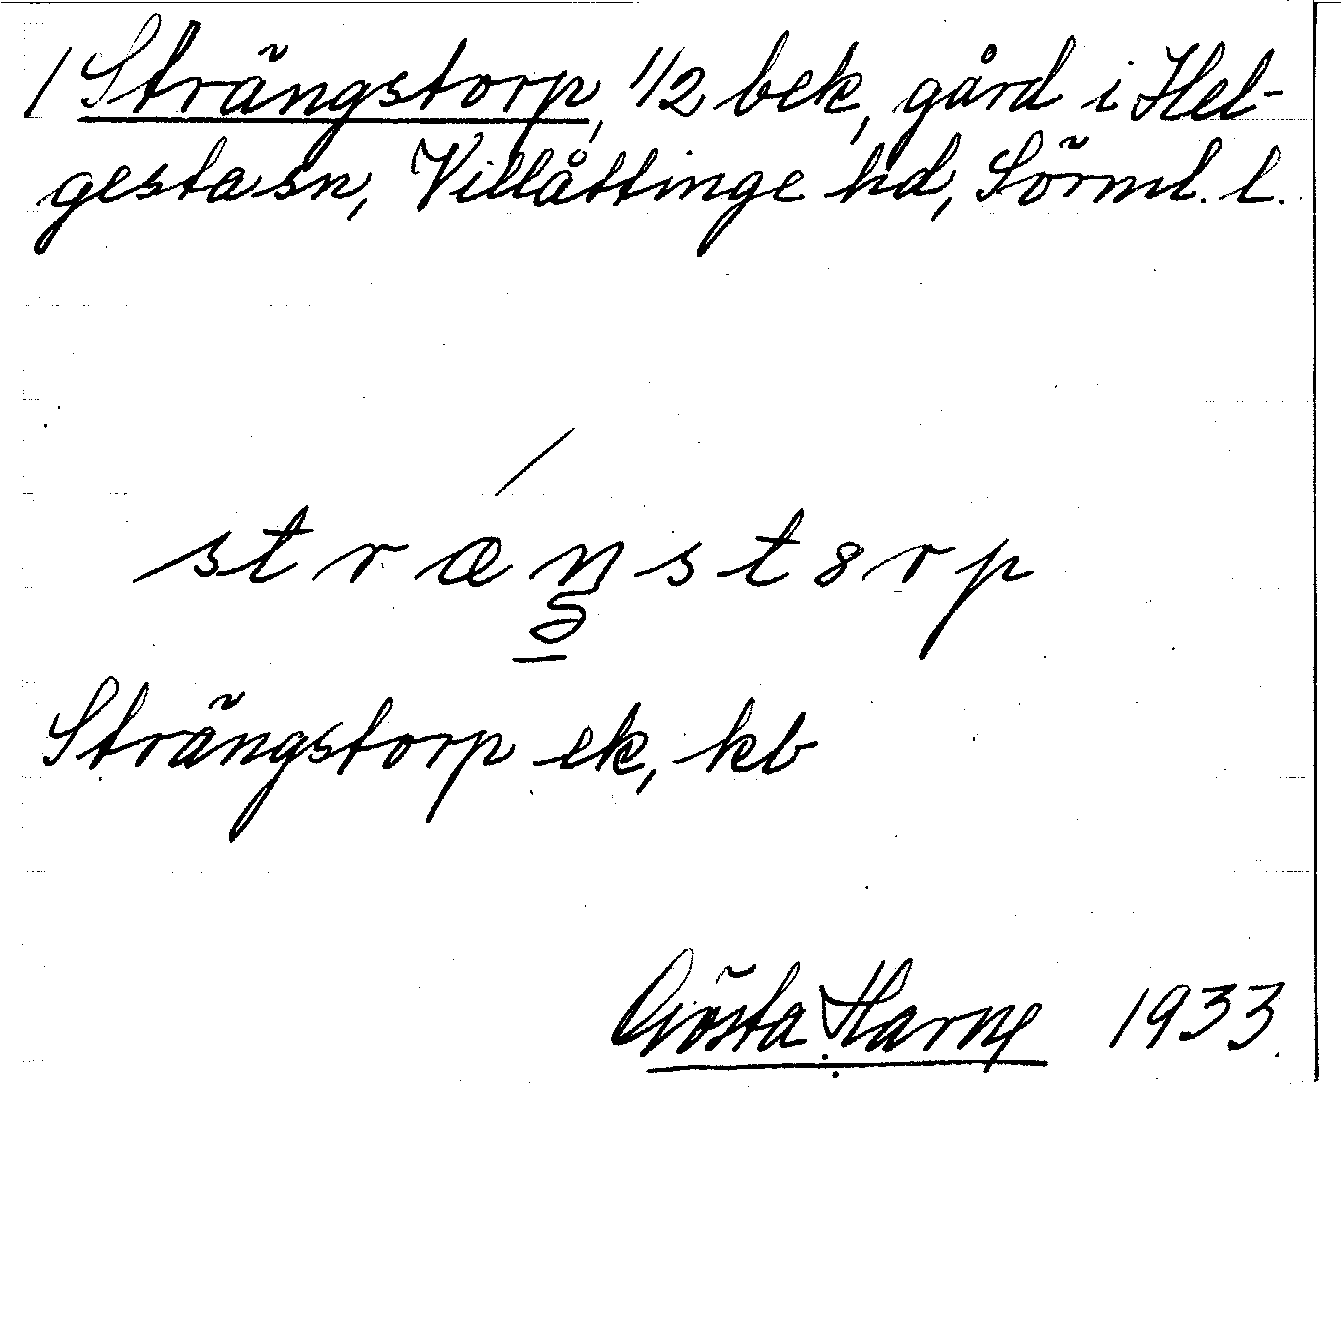 / Strängstorp, 1/2 bek, gård i Hel-
gesta sn, Villåttinge hd, Sörml. l.
stræŋstorp
Strängstorp ek, kb
Gösta Harne 1933.